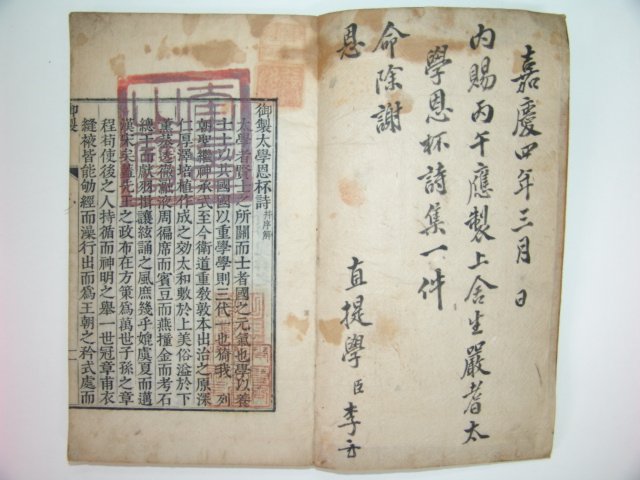 嘉慶四年三月日
內賜丙午應製上舍生嚴耆太
學恩杯詩集一件
命除謝
恩
直提學臣李
御製太學恩杯詩幷序解
太學者賢士之所關而士者國之元氣也學以養
士士以共國國以重學學則三代一也猗我列
朝聖繼神承式至今衛道重敎敦本出治之原深
仁厚澤培植作成之効太和敷於上美俗溢於下
周徧席而賓豆而燕撞金而考石
總干而獻羽揖讓絃誦之風庶幾乎媲虞夏而邁
漢宋矣蓋先王之政布在方策爲萬世子孫之章
程苟使後之人持循而神明之擧一世冠章甫衣
縫掖皆能劬經而澡行出而爲王朝之矜式處而
御製
一